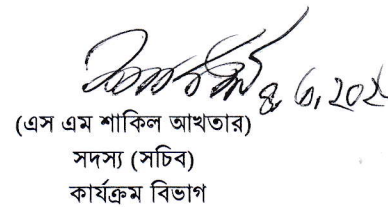 (এস এম শাকিল আখতার)
সদস্য (সচিব)
কার্যক্রম বিভাগ